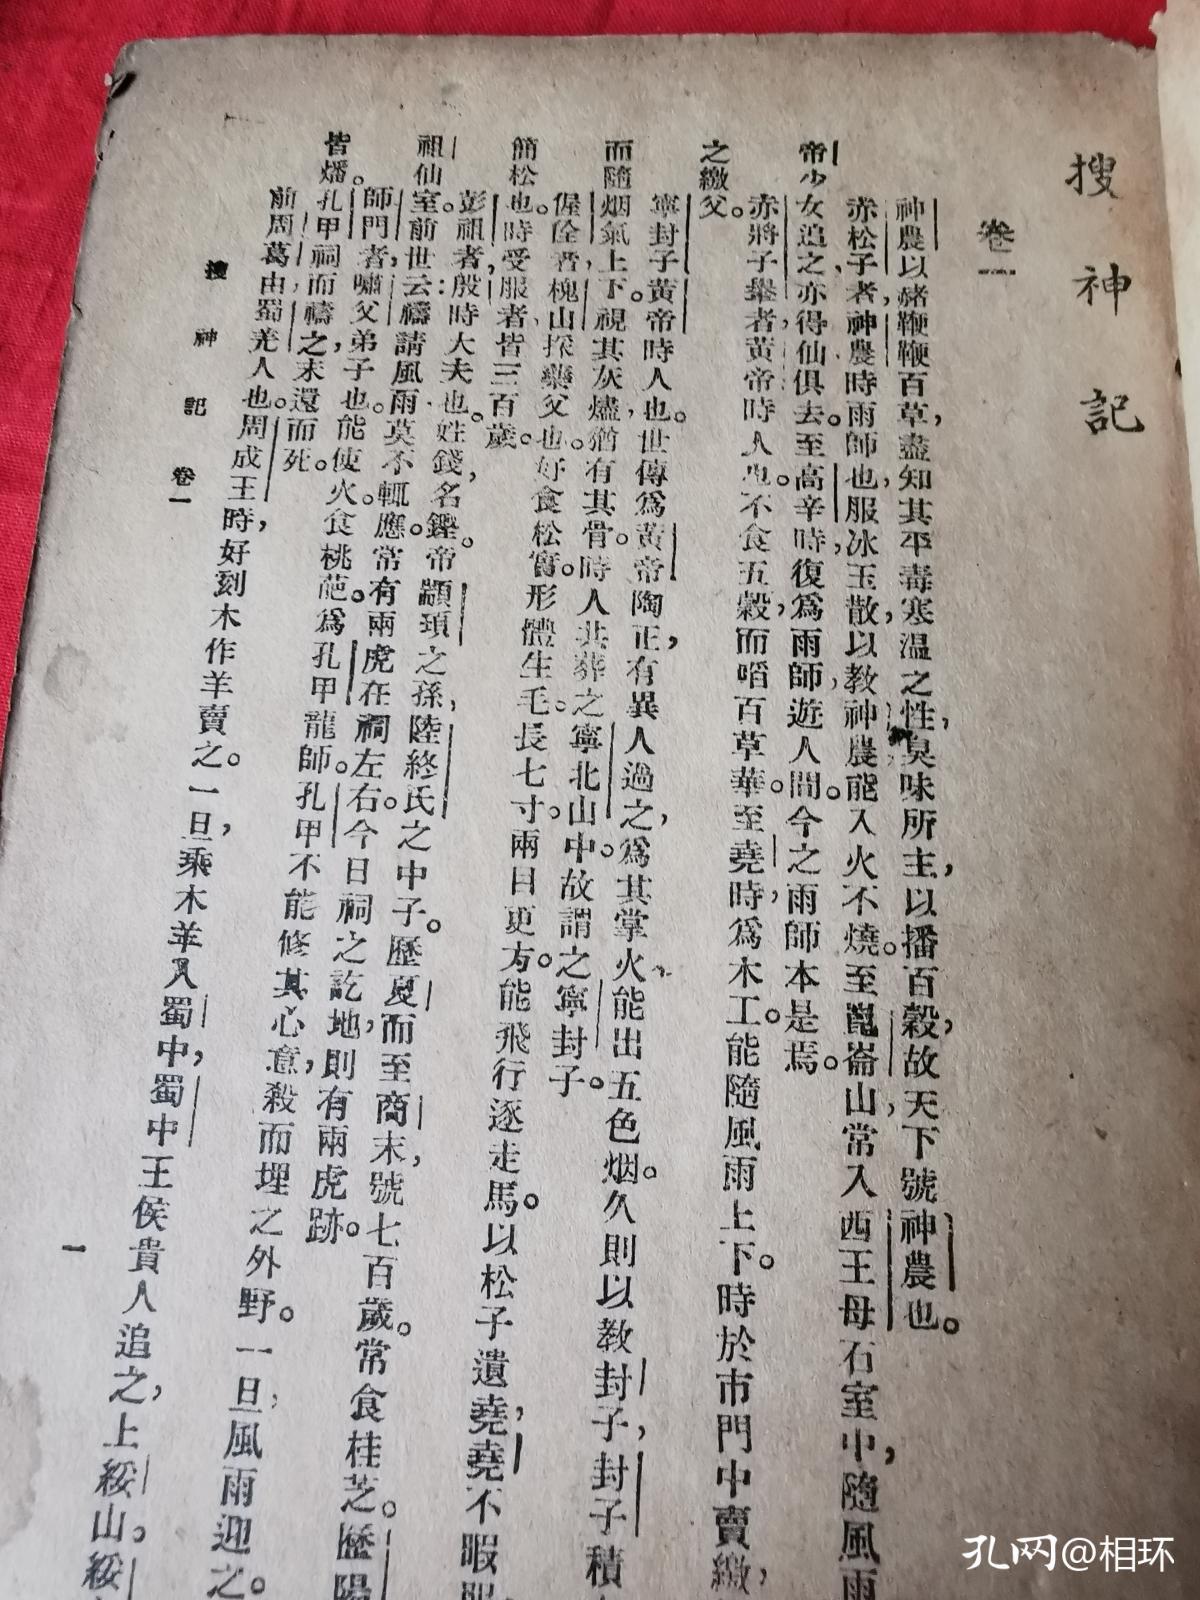 搜神記
卷一
神農以赭鞭鞭百草，盡知其平毒寒溫之性，臭味所主，以播百穀，故天下號神農也。
赤松子者，神農時雨師也，服冰玉散，以教神農，能入火不燒。至崑崙山，常入西王母石室中，隨風雨
帝少女追之，亦得仙，俱去。至高辛時，復爲雨師，遊人間。今之雨師本是焉。
赤將子轝者，黃帝時人也。不食五穀，而啗百草華。至堯時，爲木工。能隨風雨上下。時於市門中賣繳，
之繳父。
寧封子，黃帝時人也。世傳爲黃帝陶正，有異人過之，爲其掌火，能出五色烟。久則以教封子，封子積
而隨烟氣上下。視其灰燼，猶有其骨。時人共葬之寧北山中。故謂之寧封子。
偓佺者，槐山採藥父也。好食松實。形體生毛。長七寸。兩目更方。能飛行逐走馬。以松子遺堯，堯不暇服
簡松也。時受服者，皆三百歲。
彭祖者，殷時大夫也。姓錢，名鏗。帝顓頊之孫，陸終氏之中子。歷夏而至商末，號七百歲。常食桂芝。歷陽
祖仙室。前世云：禱請風雨，莫不輒應。常有兩虎在祠左右。今日祠之訖，地則有兩虎跡。
師門者，嘯父弟子也。能使火。食桃葩。爲孔甲龍師。孔甲不能修其心意，殺而埋之外野。一旦，風雨迎之。
皆燔。孔甲祠而禱之，未還而死。
前周葛由，蜀羌人也。周成王時，好刻木作羊賣之。一旦，乘木羊入蜀中，蜀中王侯貴人追之，上綏山。綏
搜神記 卷一
一
孔网@相环